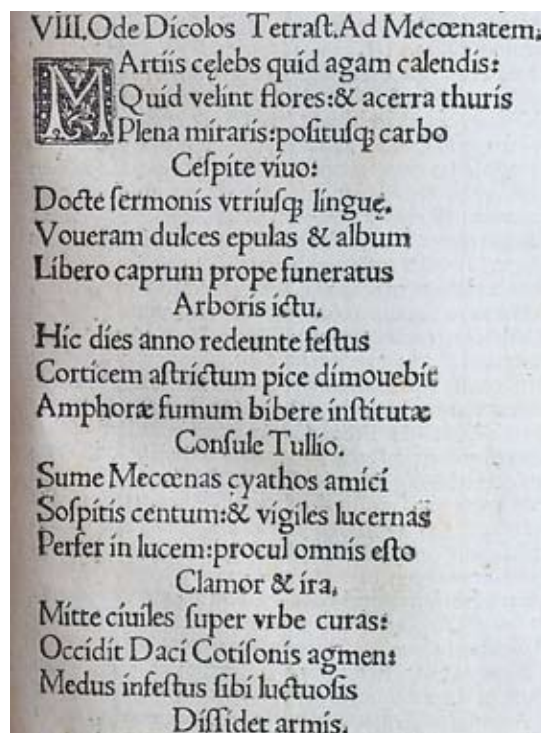 VIII.Ode Dicolos Tetraſt.Ad Mecœnatem.
MArtiis cęlebs quid agam calendis:
Quid velint flores:& acerra thuris
Plena miraris:poſituſqꝫ carbo
Ceſpite viuo:
Docte ſermonis vtriuſqꝫ linguę.
Voueram dulces epulas & album
Libero caprum prope funeratus
Arboris ictu.
Hic dies anno redeunte feſtus
Corticem aſtrictum pice dimouebit
Amphoræ fumum bibere inſtitutæ
Conſule Tullio.
Sume Mecœnas cyathos amici
Soſpitis centum:& vigiles lucernas
Perfer in lucem:procul omnis eſto
Clamor & ira.
Mitte ciuiles ſuper vrbe curas:
Occidit Daci Cotiſonis agmen:
Medus infeſtus ſibi luctuoſis
Diſſidet armis.